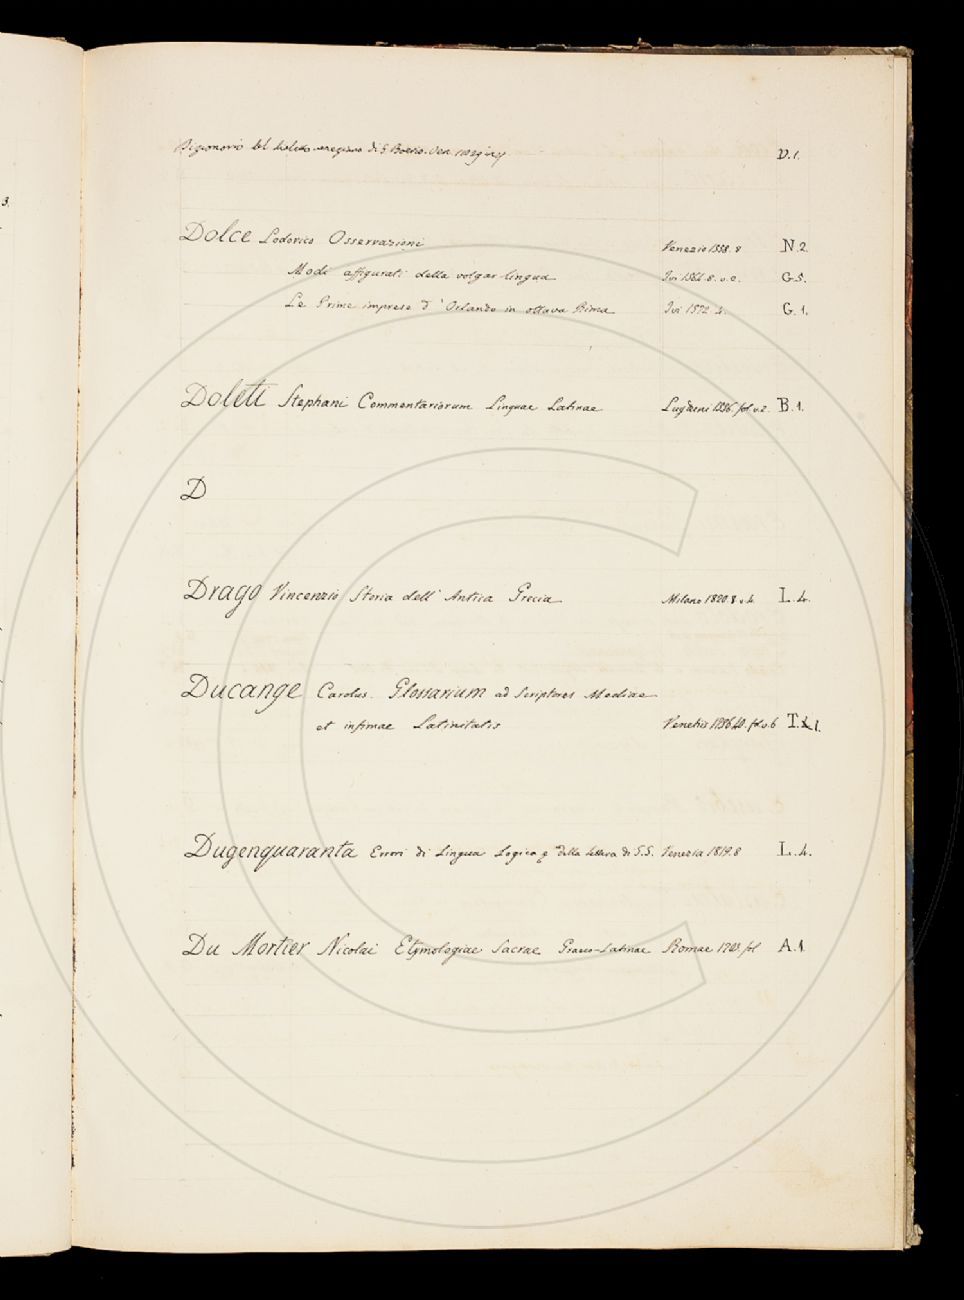 3.
Dizionario del dialetto veneziano di G. Boerio. Ven. D.1.
Dolce Lodovico Osservazioni Venezia 1558. 8 N.2.
Modi affigurati della volgar lingua Ivi 1564. 8. v.e. G.5.
Le Prime imprese d'Orlando in ottava Rima Ivi 1572. 4. G.1.
Doleti Stephani Commentariorum Linguae Latinae Lugduni 1536. fol v.2. B.1.
D
Drago Vincenzio Storia dell' Antica Grecia Milano 1820. 8 v.4. L.4.
Ducange Carolus Glossarium ad Scriptores Mediae
et infimae Latinitatis Venetiis 1736.40. fol v.6 T.1.
Dugenquaranta Errori di Lingua Logica della lettera di S.S. Venezia 1819. 8 L.4.
Du Mortier Nicolai Etymologiae Sacrae Graeco-Latinae Romae 1703. fol A.1.